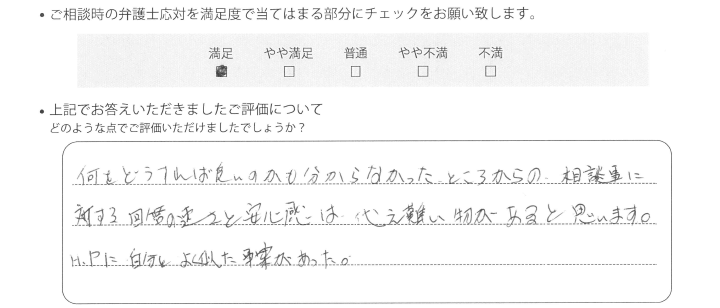 • ご相談時の弁護士応対を満足度で当てはまる部分にチェックをお願い致します。
満足 やや満足 普通 やや不満 不満
• 上記でお答えいただきましたご評価について
どのような点でご評価いただけましたでしょうか？
何をどうすれば良いのかも分からなかったところからの、相談事に
対する回答の速さと安心感は代え難い物があると思います。
H.Pに自分とよく似た事案があった。